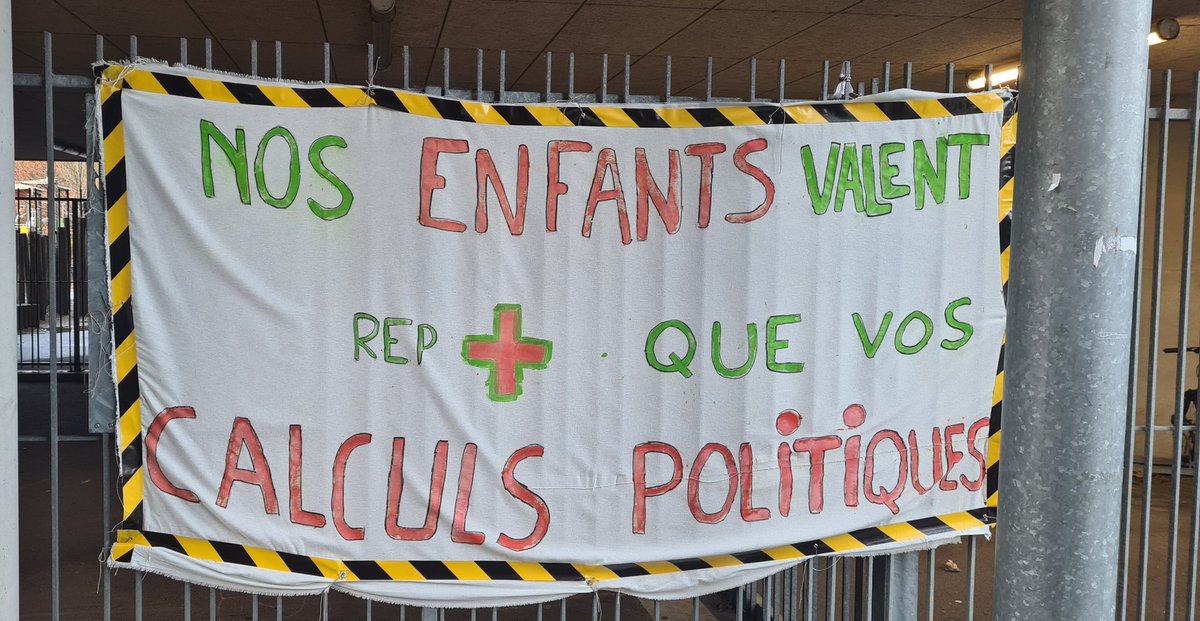 NOS ENFANTS VALENT
REP + QUE VOS
CALCULS POLITIQUES